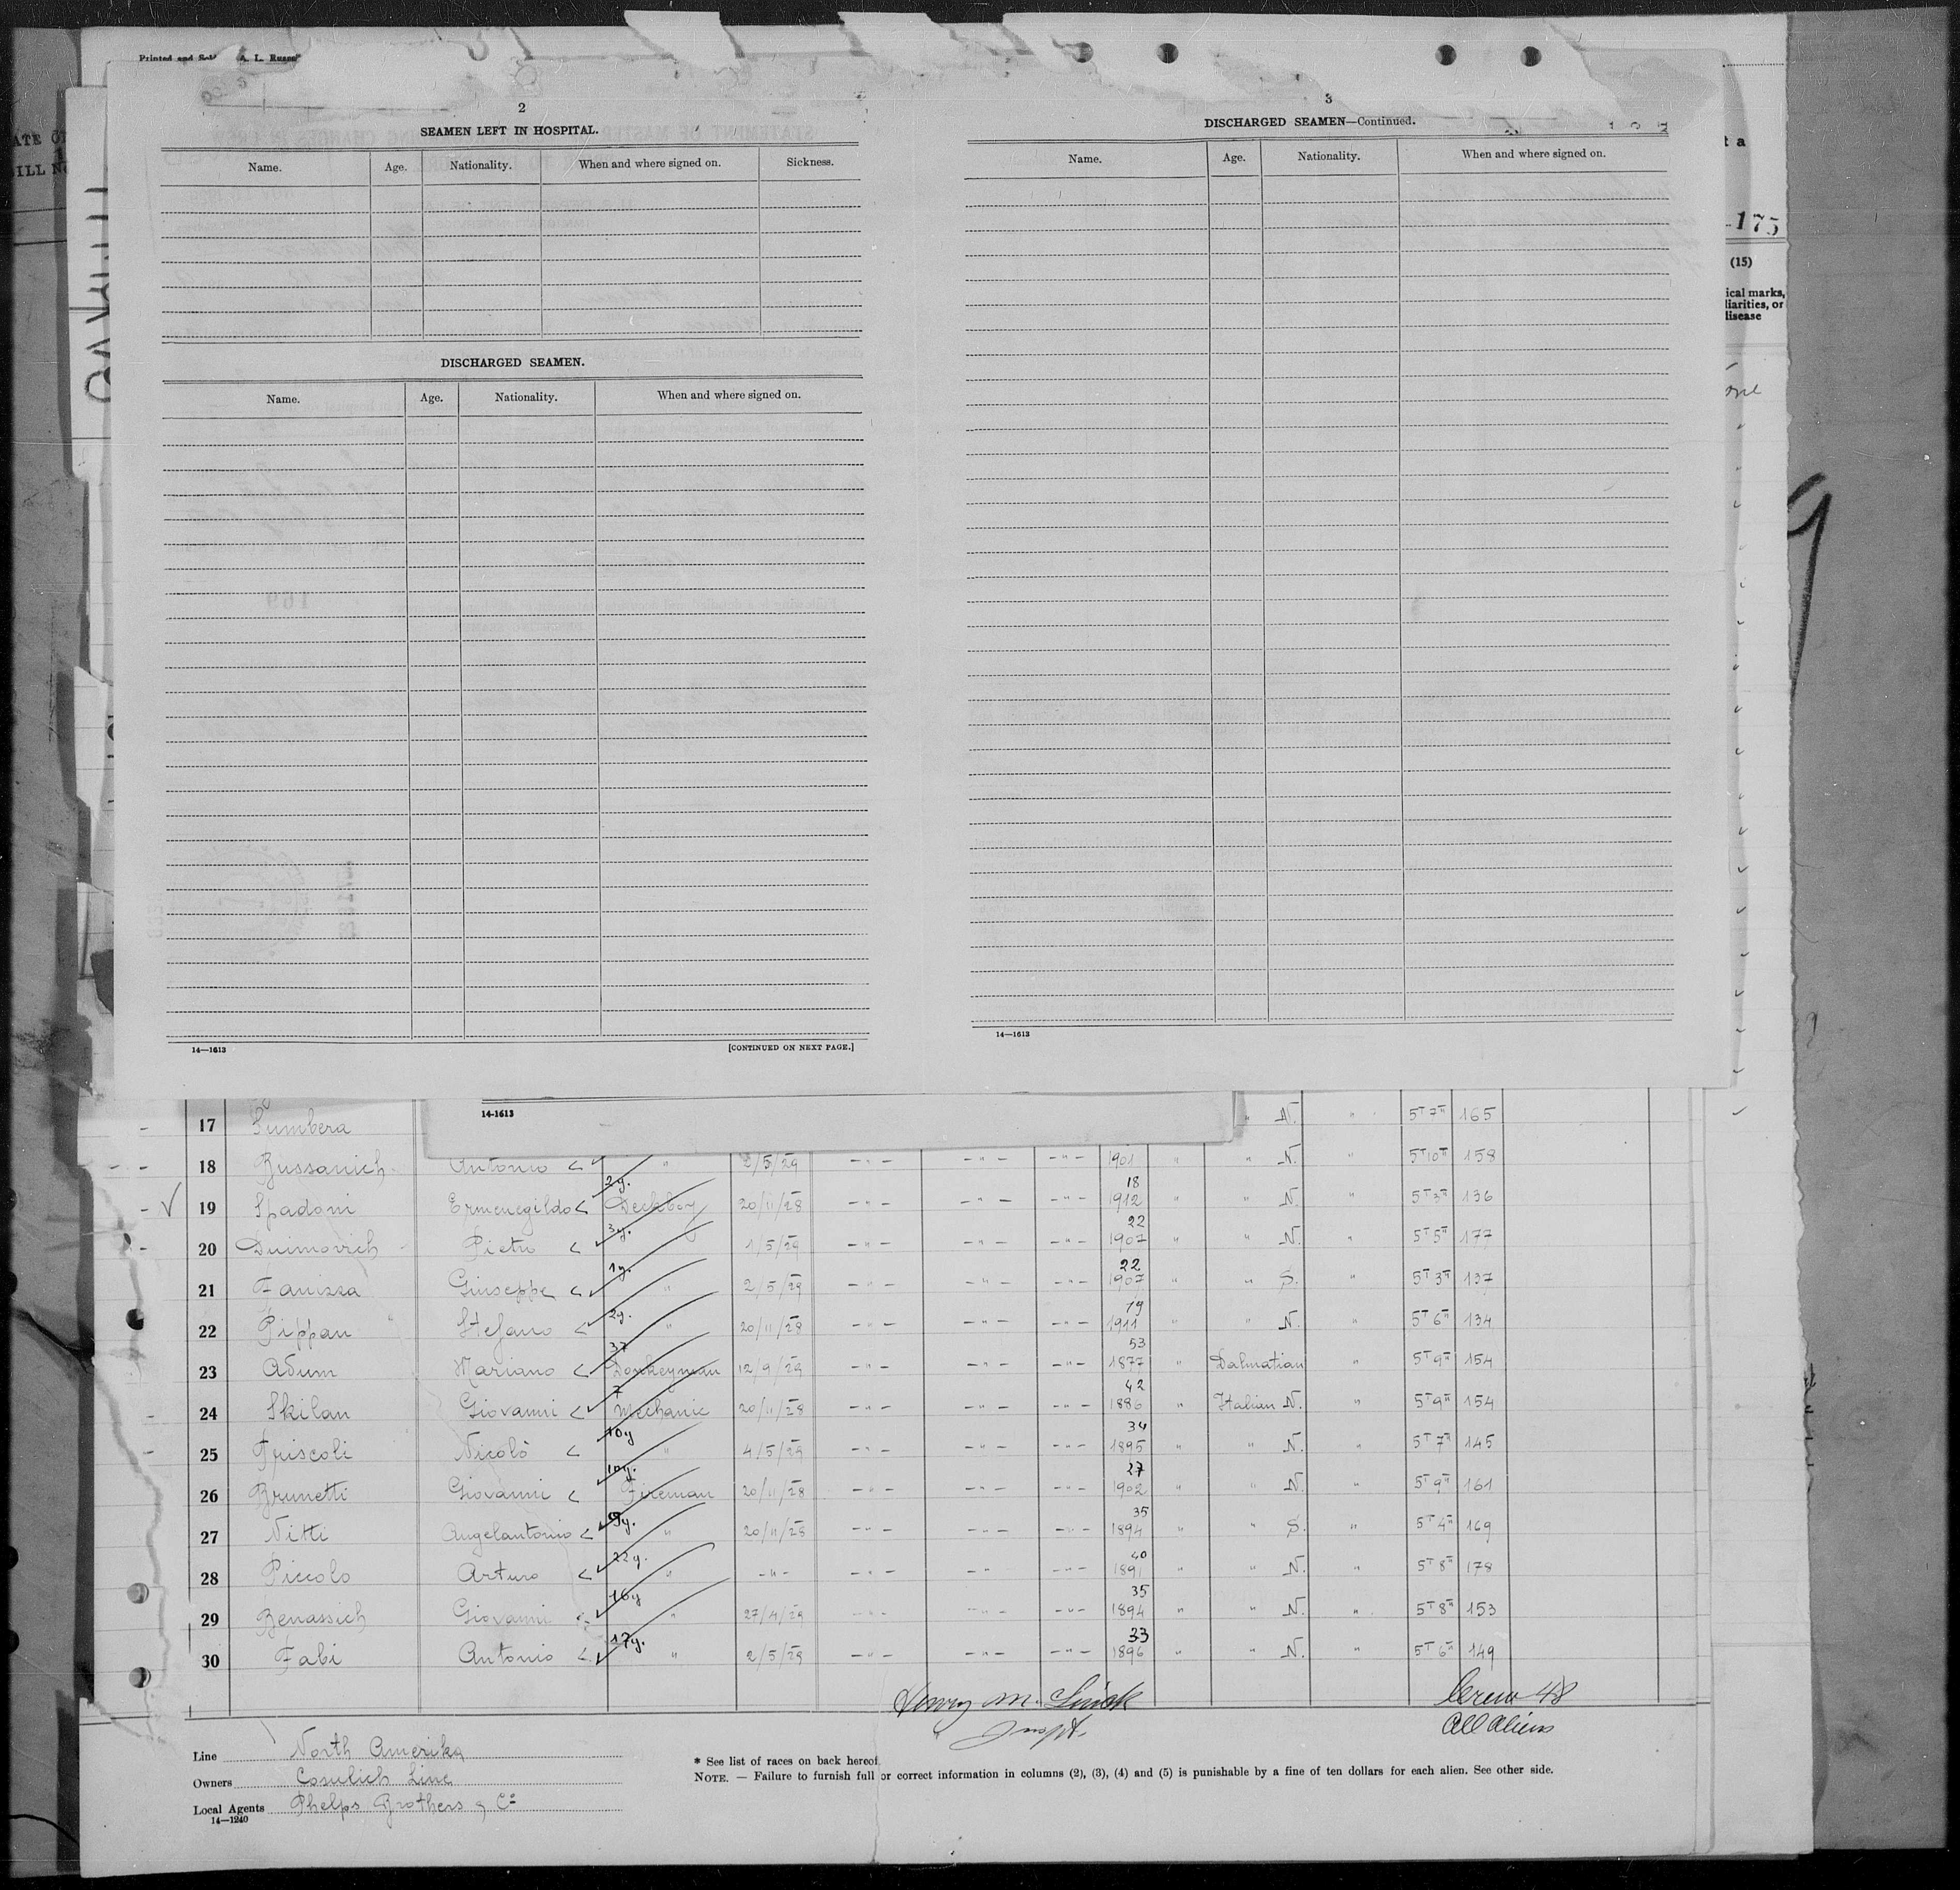 Printed and Sol A. L. Russe
2
SEAMEN LEFT IN HOSPITAL.
Name. Age. Nationality. When and where signed on. Sickness.
DISCHARGED SEAMEN.
Name. Age. Nationality. When and where signed on.
14—1613 [CONTINUED ON NEXT PAGE.]
3
DISCHARGED SEAMEN—Continued.
Name. Age. Nationality. When and where signed on.
14—1613
ATE O
ILL N
t a
175
(15)
ical marks,
liarities, or
disease
14-1613
17 Sumbera " N. " 5' 7" 165
18 Bussanich Antonio " 2/5/29 -"- -"- -"- 1901 " " N. " 5' 10" 158
19 Spadoni Ermenegildo 2y. Deckboy 20/11/28 -"- -"- -"- 18 1912 " " N. 5' 3" 136
20 Duimovich Pietro 3y. 1/5/29 -"- -"- -"- 22 1907 " " N. " 5' 5" 177
21 Fanizza Giuseppe 1y. " 2/5/29 -"- -"- -"- 22 1907 " " S. " 5' 3" 137
22 Pippan Stefano 2y. " 20/11/28 -"- -"- -"- 19 1911 " " N. " 5' 6" 134
23 Adum Mariano 37 Donkeyman 12/9/29 -"- -"- -"- 53 1877 " Dalmatian " 5' 9" 154
24 Skilan Giovanni 7 Mechanic 20/11/28 -"- -"- -"- 42 1886 " Italian N. " 5' 9" 154
25 Friscoli Nicolò 10y " 4/5/29 -"- -"- -"- 34 1895 " " N. " 5' 7" 145
26 Brunetti Giovanni 10y. Fireman 20/11/28 -"- -"- -"- 27 1902 " " N. " 5' 9" 161
27 Nitti Angelantonio 9y. " 20/11/28 -"- -"- -"- 35 1894 " " S. " 5' 4" 169
28 Piccolo Arturo 22y. " -"- -"- -"- -"- 40 1891 " " N. " 5' 8" 178
29 Benassich Giovanni 16y " 27/4/29 -"- -"- -"- 35 1894 " " N. " 5' 8" 153
30 Fabi Antonio 17y. " 2/5/29 -"- -"- -"- 33 1896 " " N. " 5' 6" 149
Inspt.
Crew 48
All aliens
Line North Amerika
Owners Cosulich Line
Local Agents Phelps Brothers & Co
14—1240
* See list of races on back hereof
NOTE. — Failure to furnish full or correct information in columns (2), (3), (4) and (5) is punishable by a fine of ten dollars for each alien. See other side.